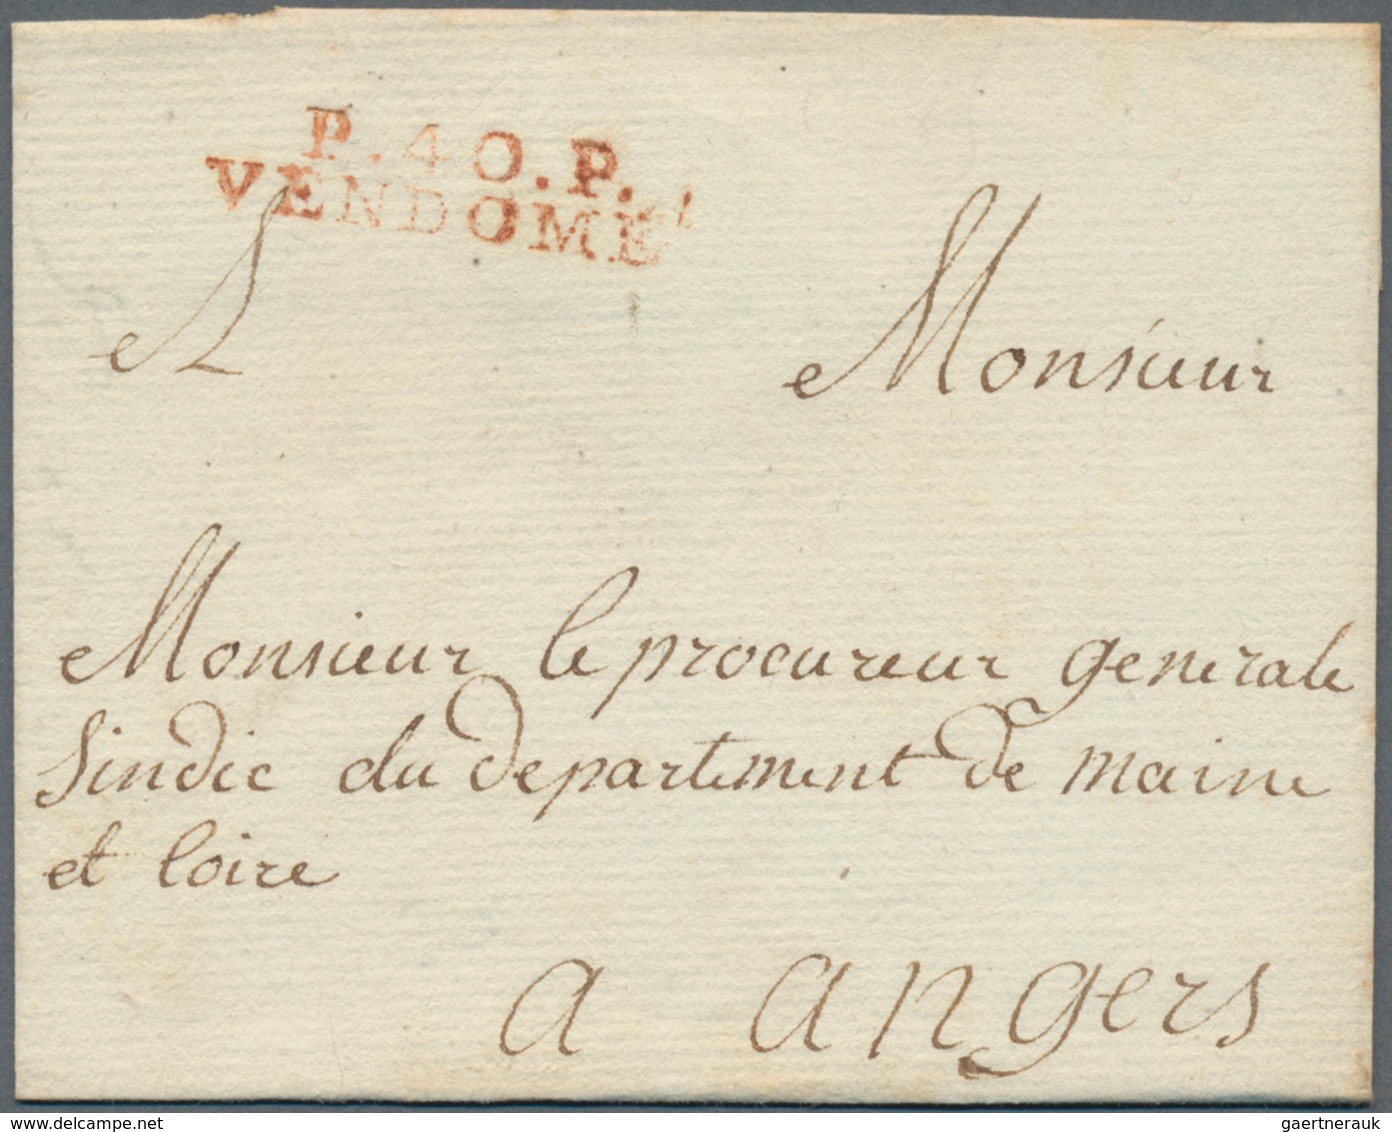 P.40.P.
VENDOME
A Monsieur
Monsieur le procureur generale
Sindic du departement de maine
et loire
a angers
www.delcampe.net
gaertnerauk